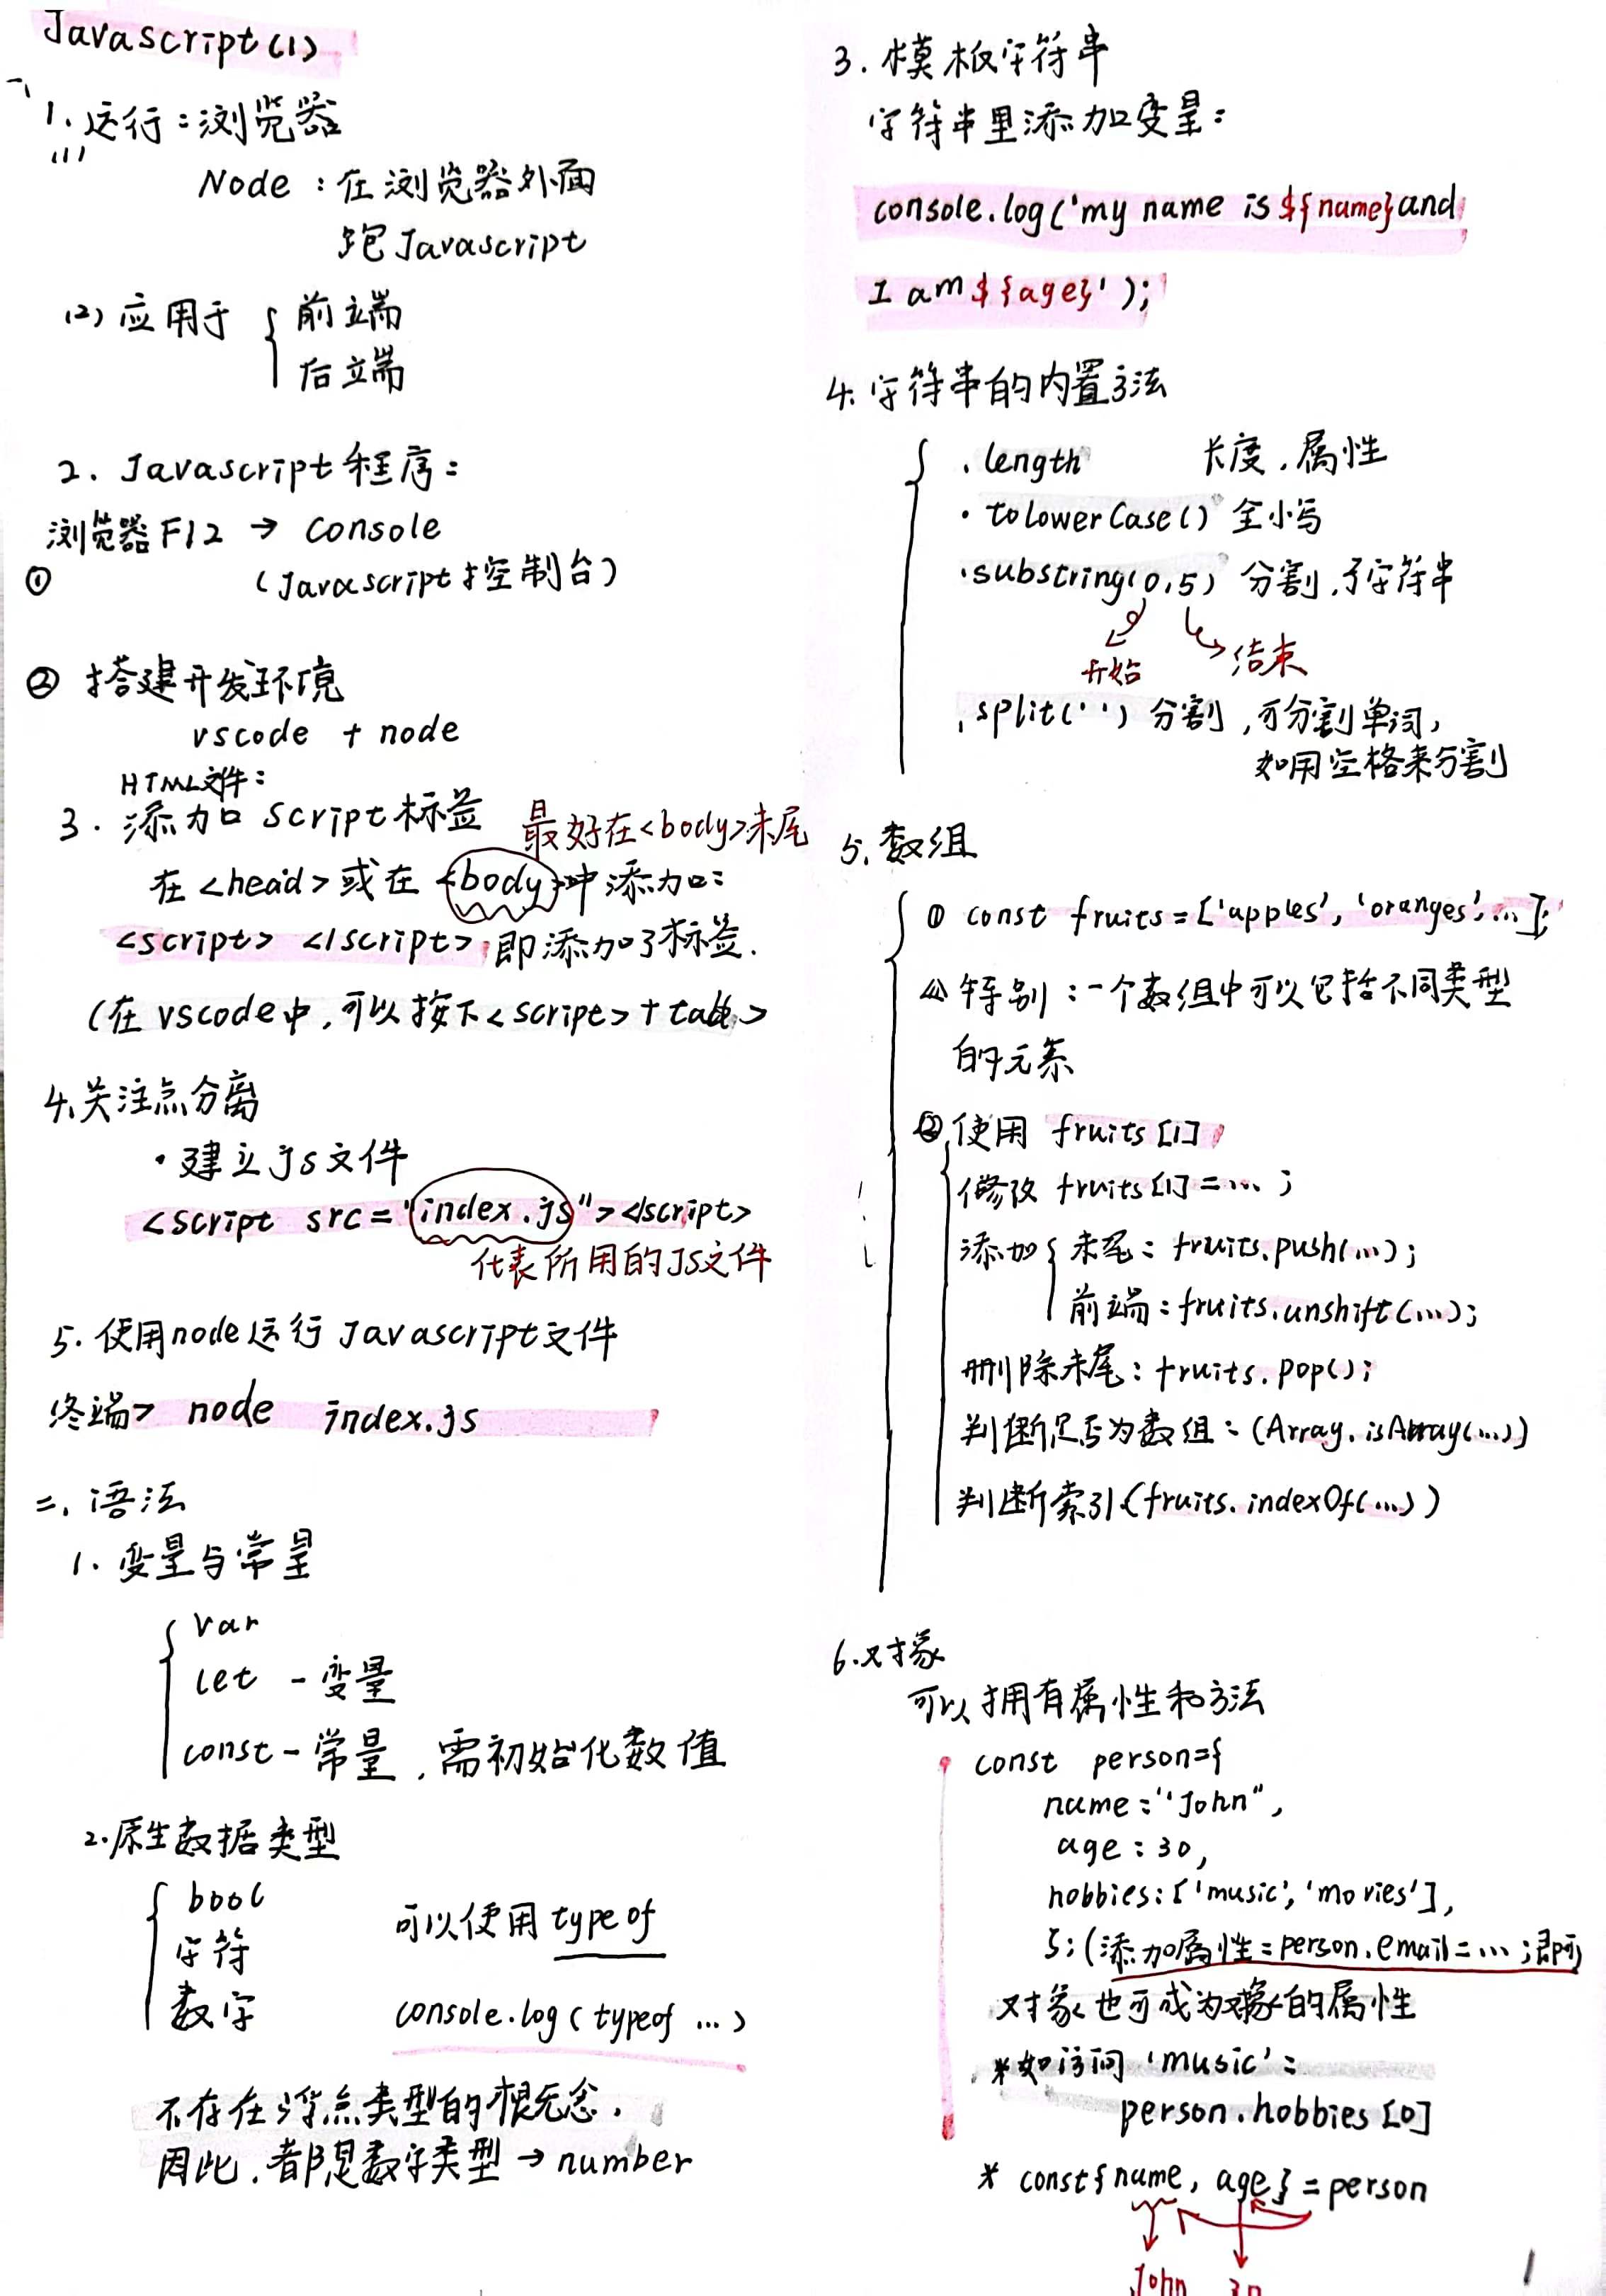 Javascript(1)
一、
1. 运行：浏览器
(1)
Node：在浏览器外面
跑Javascript
(2) 应用于 { 前端
后端
2. Javascript程序：
浏览器F12 → console
① (Javascript控制台)
② 搭建开发环境
vscode + node
HTML文件：
3. 添加script标签 最好在<body>末尾
在<head>或在<body>中添加：
<script> </script> 即添加了标签.
(在vscode中,可以按下<script>+tab>
4、关注点分离
· 建立js文件
<script src="index.js"></script>
代表所用的JS文件
5. 使用node运行Javascript文件
终端> node index.js
二、语法
1. 变量与常量
{ var
let - 变量
const - 常量，需初始化数值
2. 原生数据类型
{ bool
字符 可以使用typeof
数字 console.log(typeof ...)
不存在浮点类型的概念.
因此,都是数字类型 → number
3. 模板字符串
字符串里添加变量：
console.log('my name is ${name} and
I am ${age}');
4. 字符串的内置方法
{ .length 长度,属性
.toLowerCase() 全小写
.substring(0,5) 分割,子字符串
开始 结束
.split('') 分割,可分割单词,
如用空格来分割
5. 数组
{ ① const fruits=['apples','oranges',...];
特别：一个数组中可以包括不同类型
的元素
② 使用 fruits[1]
修改 fruits[1]=...;
添加 { 末尾：fruits.push(...);
前端：fruits.unshift(...);
删除末尾：fruits.pop();
判断是否为数组：(Array.isArray(...))
判断索引(fruits.indexOf(...))
6. 对象
可以拥有属性和方法
const person={
name:"John",
age:30,
hobbies:['music','movies'],
};(添加属性=person.email=...;即可)
对象也可成为对象的属性
*如访问'music'：
person.hobbies[0]
* const{name, age}=person
John 30
1